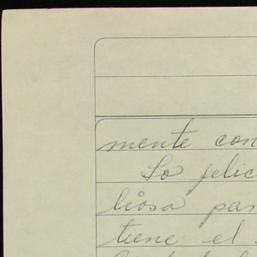 mente con
Lo felic
liosa par
tiene el